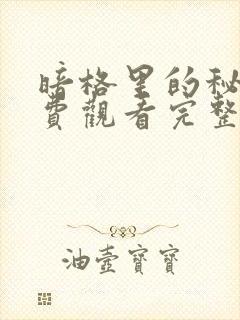 暗格里的秘
費觀看完整
油壺寶寶